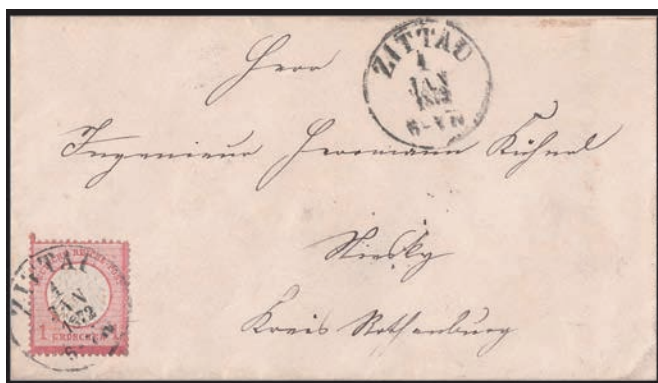 Herr
ZITTAU
1
JAN
1872
6-VN
Ingenieur Herrmann Kühnel
Niesky
Kreis Rothenburg
ZITTAU
1
JAN
1872
1 GROSCHEN